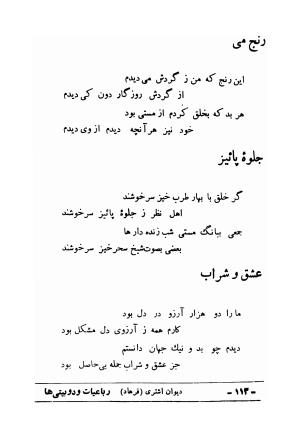 رنج می
این رنج که من ز گردش می دیدم
از گردش روزگار دون کی دیدم
هر بد که بخلق کردم از مستی بود
خود نیز هر آنچه دیدم از وی دیدم
جلوهٔ پائیز
گر خلق با بهار طرب خیز سرخوشند
اهل نظر ز جلوهٔ پائیز سرخوشند
جمعی ببانگ مستی شب زنده دارها
بعضی بصوت شیخ سحر خیز سرخوشند
عشق و شراب
ما را دو هزار آرزو در دل بود
کارم همه ز آرزوی دل مشکل بود
دیدم چو بد و نیك جهان دانستم
جز عشق و شراب جمله بی‌حاصل بود
- ۱۱۳ - دیوان اشتری (فرهاد) رباعیات و دوبیتی‌ها